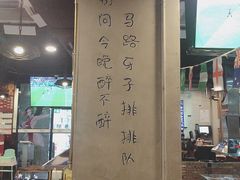 马路牙子排排队
别问今晚醉不醉